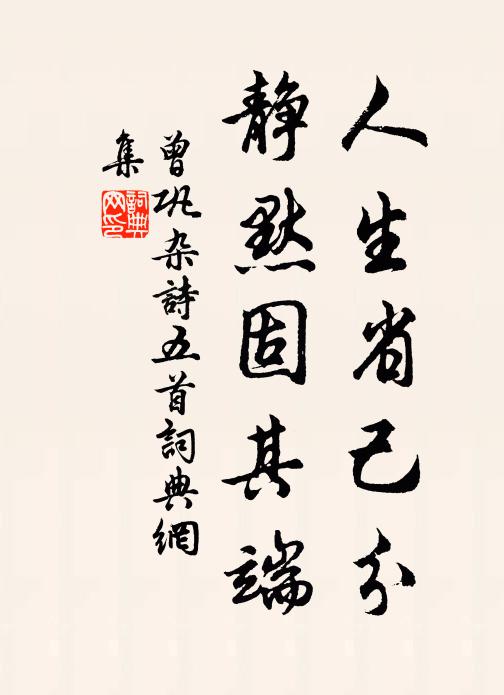 人生省己分
静默固其端
曾巩杂詩五首詞典網
集
詞典网印